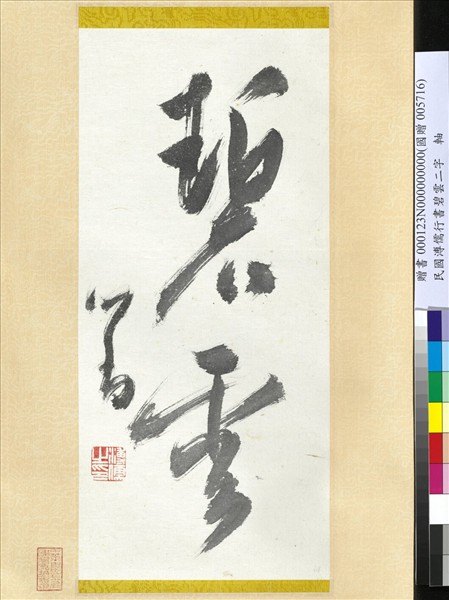 碧雲
贈書 000123N000000000(國贈 005716)
民國溥儒行書碧雲二字 軸